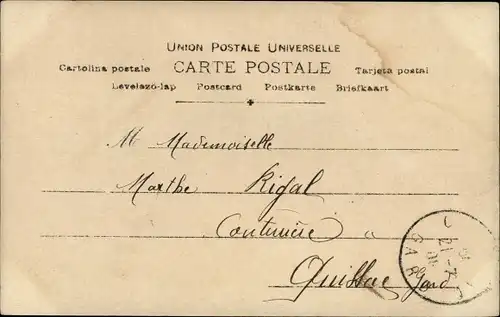 UNION POSTALE UNIVERSELLE
Cartolina postale CARTE POSTALE Tarjeta postal
Levelezó-lap Postcard Postkarte Briefkaart
Mademoiselle
Marthe Rigal
Couturière à
Quissac Gard
GARD